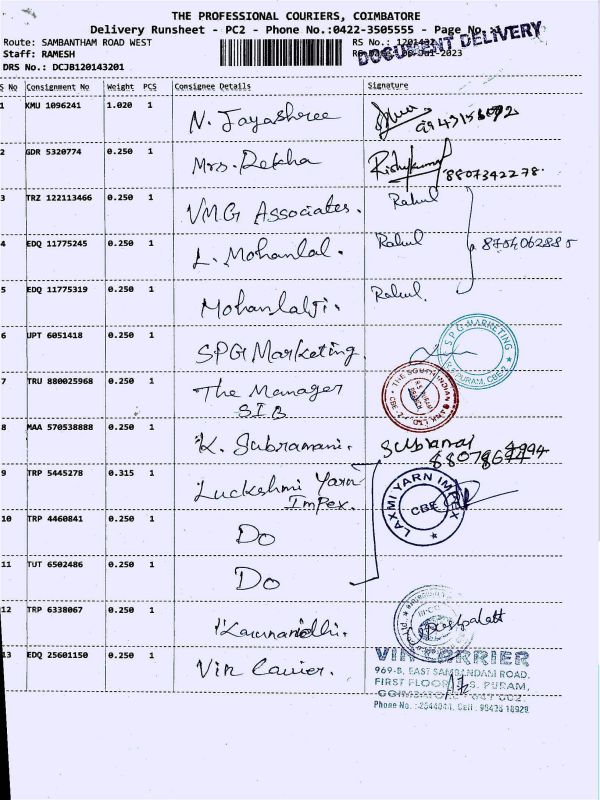 THE PROFESSIONAL COURIERS, COIMBATORE
Delivery Runsheet - PC2 - Phone No.:0422-3505555 - Page No.
Route: SAMBANTHAM ROAD WEST
RS No.: 1201432
Staff: RAMESH
DOCUMENT DELIVERY
DRS No.: DCJB120143201
S No Consignment No Weight PCS Consignee Details Signature
1 KMU 1096241 1.020 1 N. Jayashree
2 GDR 5320774 0.250 1 Mrs. Rekha 8807342278.
3 TRZ 122113466 0.250 1 VMG Associates. Rahul
4 EDQ 11775245 0.250 1 L. Mohanlal. Rahul
5 EDQ 11775319 0.250 1 Mohanlalji. Rahul.
6 UPT 6051418 0.250 1 SPG Marketing.
SPG MARKETING
R.S PURAM, CBE-2
7 TRU 880025968 0.250 1 The Manager
SIB
THE SOUTH INDIAN BANK LTD.
CBE-2
8 MAA 570538888 0.250 1 K. Subramani.
9 TRP 5445278 0.315 1 Luckshmi Yarn
Impex.
LAXMI YARN IMPEX
CBE
10 TRP 4460841 0.250 1 Do
11 TUT 6502486 0.250 1 Do
12 TRP 6338067 0.250 1
13 EDQ 25601150 0.250 1 Vin Carrier.
VIN CARRIER
969-B, EAST SAMBANDAM ROAD.
FIRST FLOOR, R.S. PURAM,
COIMBATORE - 641 002.